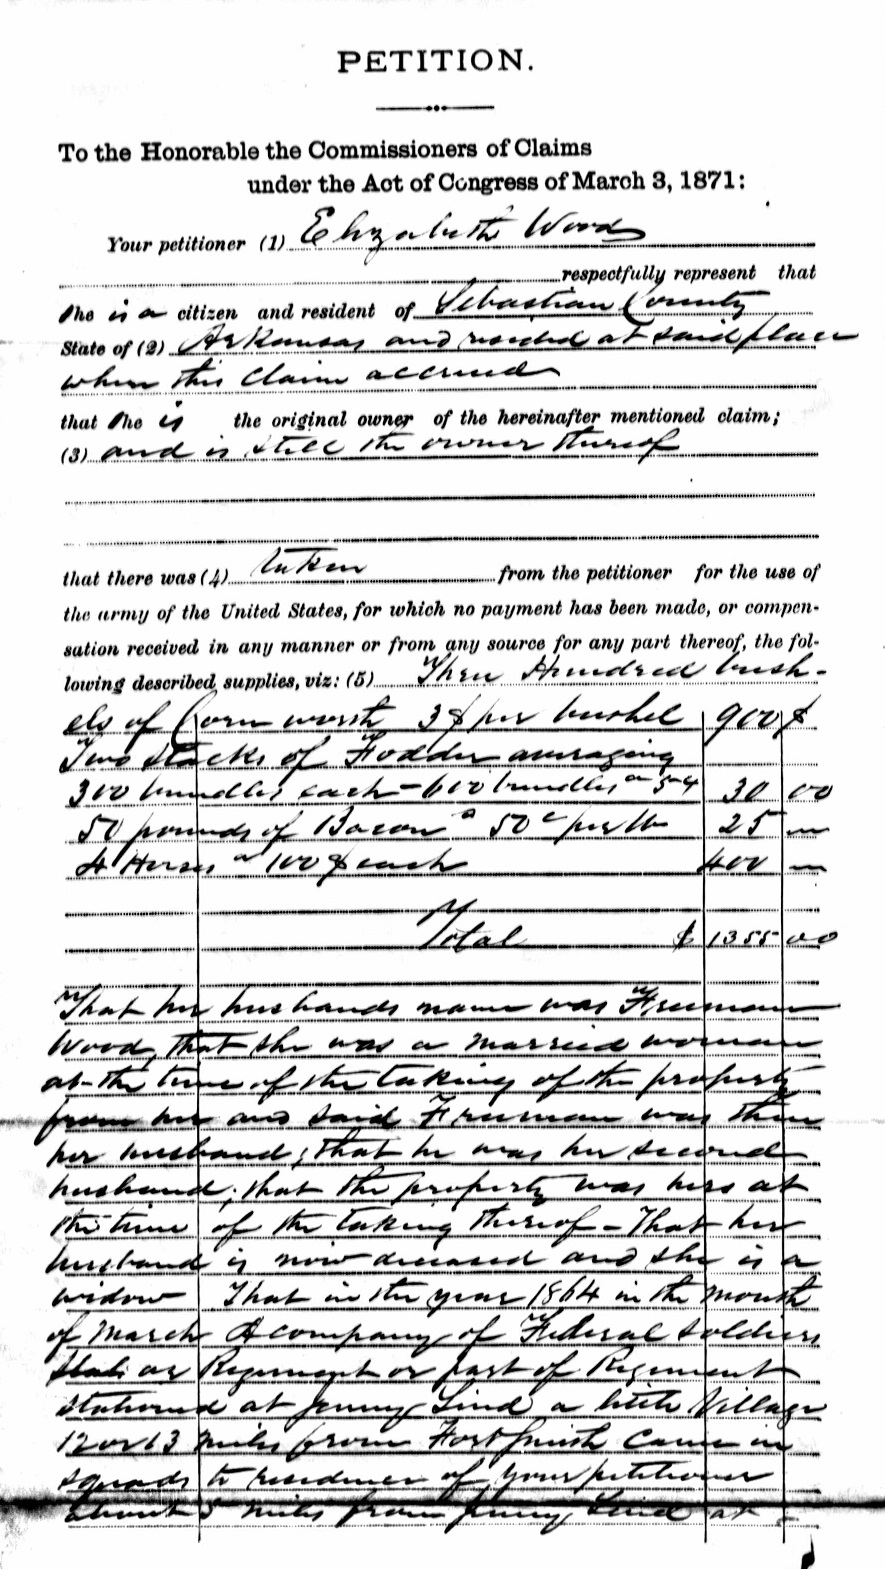 PETITION.
To the Honorable the Commissioners of Claims
under the Act of Congress of March 3, 1871:
Your petitioner (1) Elizabeth Wood
respectfully represent that
she is a citizen and resident of Sebastian County
State of (2) Arkansas and resided at said place
when this claim accrued
that she is the original owner of the hereinafter mentioned claim;
(3) and is still the owner thereof
that there was (4) taken from the petitioner for the use of
the army of the United States, for which no payment has been made, or compen-
sation received in any manner or from any source for any part thereof, the fol-
lowing described supplies, viz: (5) Three Hundred bush-
els of Corn worth 3$ per bushel 900 $
Two stacks of Fodder averaging
300 bundles each - 600 bundles a 5¢ 30 00
50 pounds of Bacon a 50c per lb 25 00
4 Horses a 100$ each 400 00
Total $ 1355 00
That her husbands name was Freeman
Wood, that she was a married woman
at the time of the taking of the property
from her and said Freeman was then
her husband; that he was her second
husband; that the property was hers at
the time of the taking thereof - That her
husband is now deceased and she is a
widow That in the year 1864 in the month
of March A company of Federal Soldiers
or Regiment or part of Regiment
stationed at Jenny Lind a little Village
12 or 13 miles from Fort Smith came in
squads to residence of your petitioner
about 5 miles from Jenny Lind at